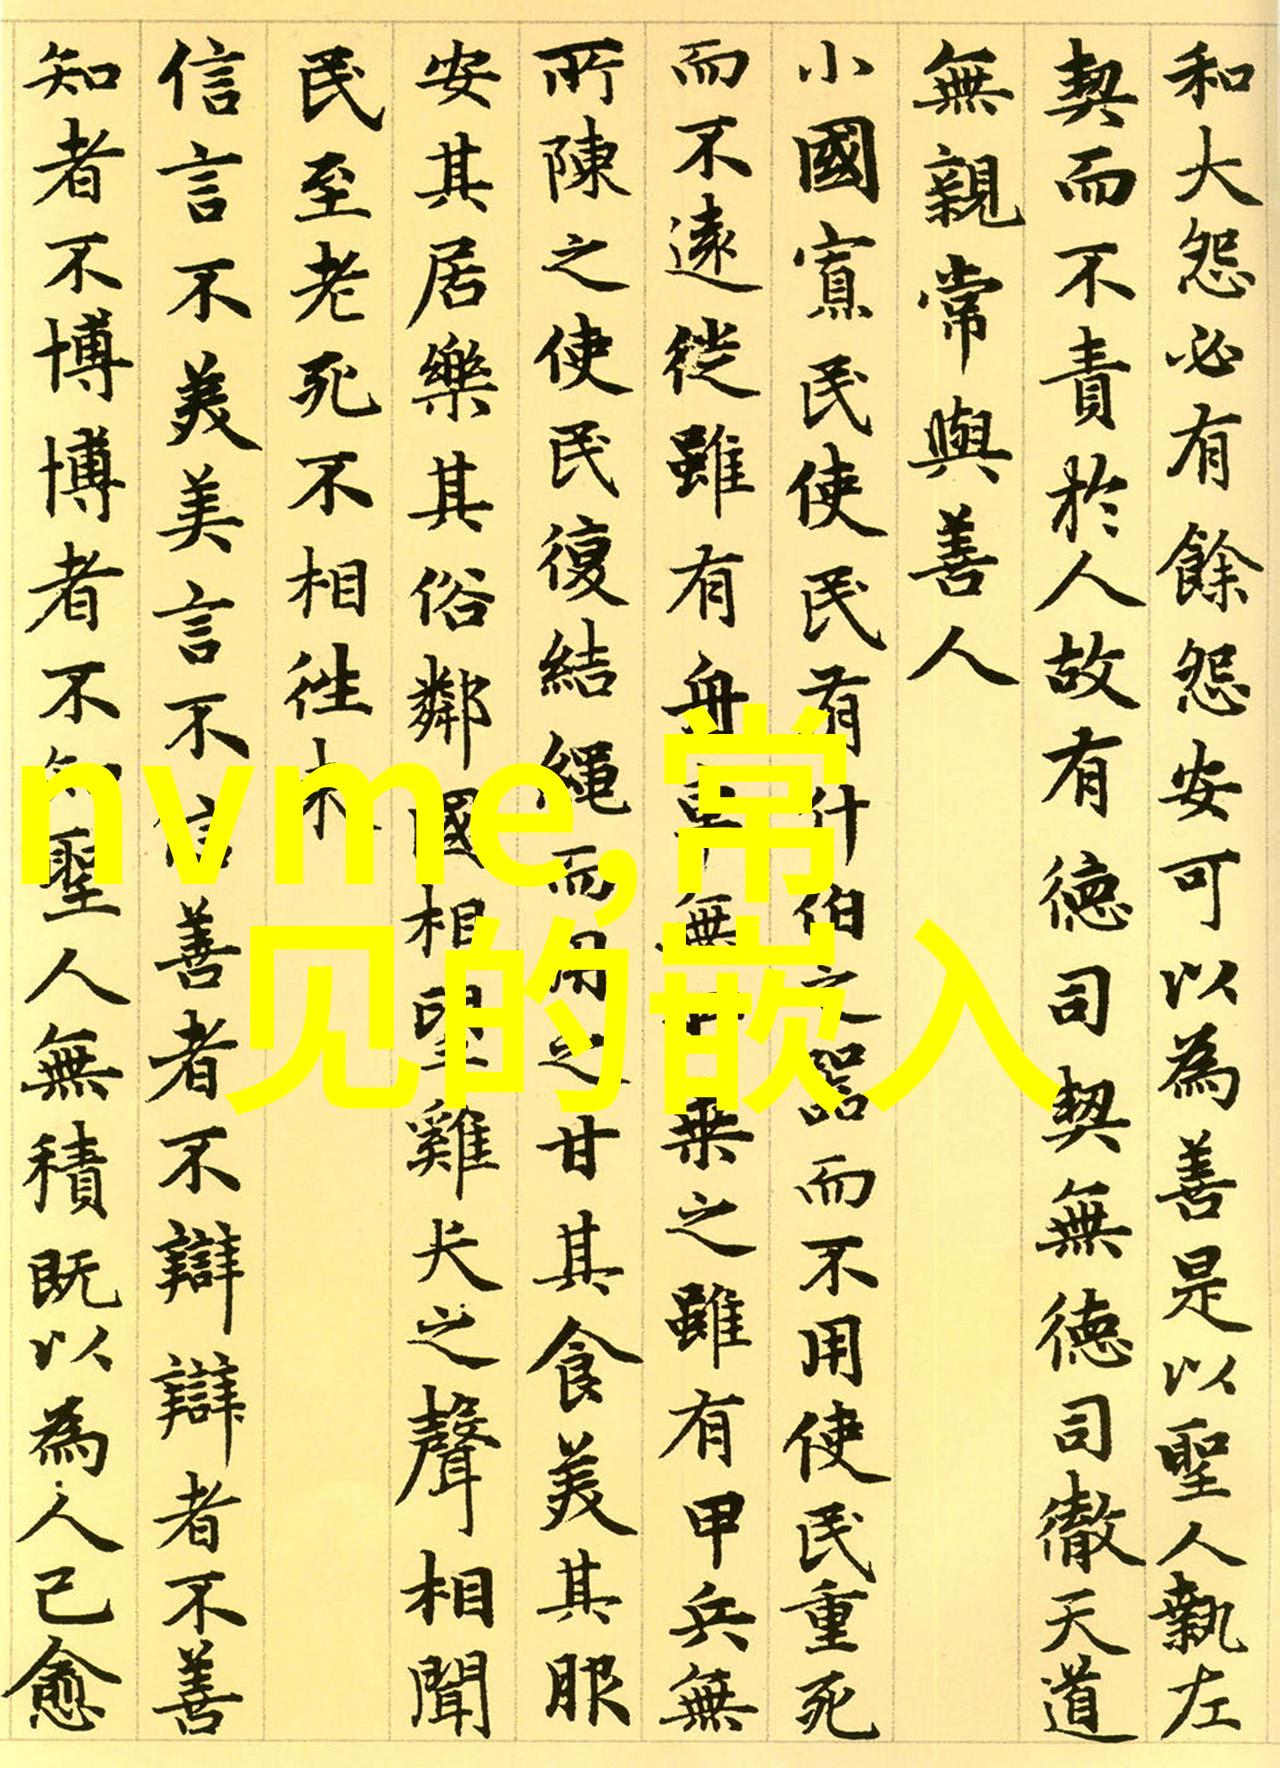 和大怨必有餘怨安可以為善是以聖人執左
契而不責於人故有德司契無德司徹天道
無親常與善人
小國寡民使民有什伯之器而不用使民重死
而不遠徙雖有舟車無所乗之雖有甲兵無
所陳之使民復結繩而用之甘其食美其服
安其居樂其俗鄰國相望雞犬之聲相聞
民至老死不相往来
信言不美美言不信善者不辯辯者不善
知者不博博者不知聖人無積既以為人己愈
nvme,常
见的嵌入